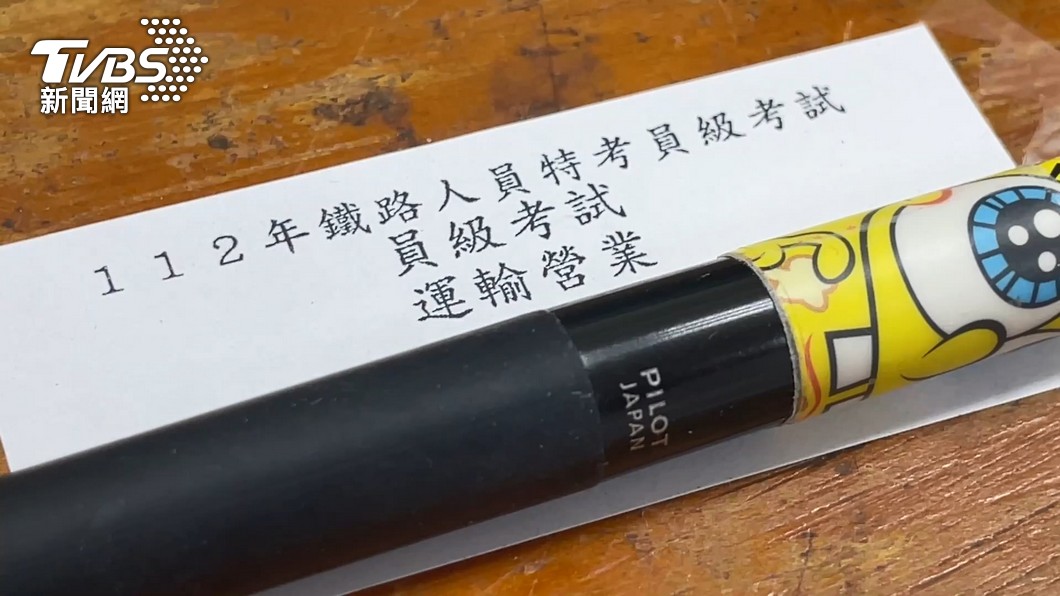 TVBS
新聞網
１１２年鐵路人員特考員級考試
員級考試
運輸營業
PILOT
JAPAN